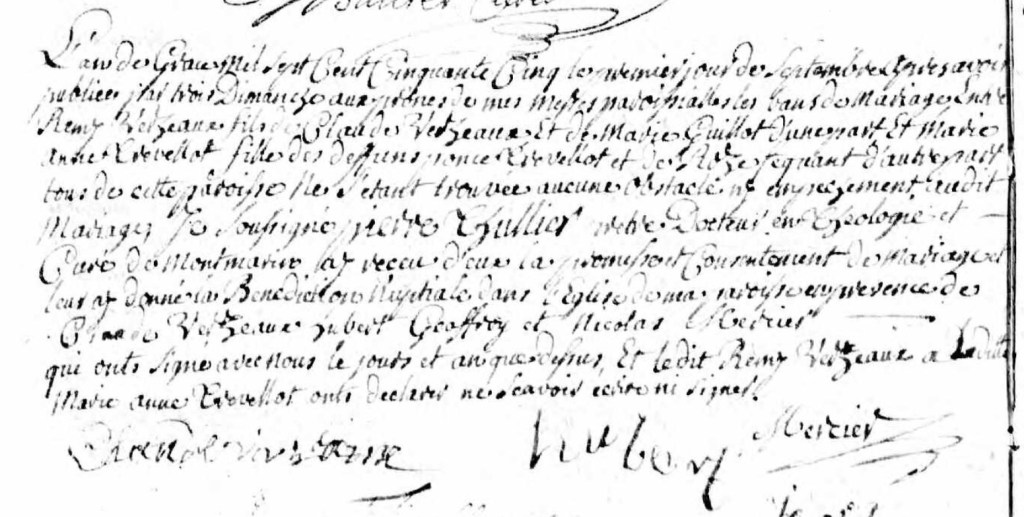 L'an de Grace Mil Sept Cent Cinquante Cinq le premier jour de Septembre apres avoir
publiée par trois Dimanche aux prones de mes messes paroissialles les bans de Mariage Entre
Remy Verzeaux fils de Claude Verzeaux Et de Marie Guillot d'une part Et Marie
Anne Trevellot fille des deffuns ponce Trevellot et de Roze d'autre part
tous de cette paroisse Ne s'étant trouvée aucune Obstacle ny empechement audit
Mariage, Je Soussigné pierre Thullier pretre Docteur en Theologie et
Curé de Montmarin ay reccu d'eux la promesse et Consentement de Mariage et
leur ay donné la Benediction Nuptiale dans l'Eglise de ma paroisse en presence de
Claude Verzeaux hubert Geoffroy et Nicolas Mercier
qui onts Signe avec nous le jours et an que dessus, Et ledit Remy Verzeaux a Ladite
Marie anne Trevellot onts declarés ne scavoir ecrire ni signer.
hubert Mercier